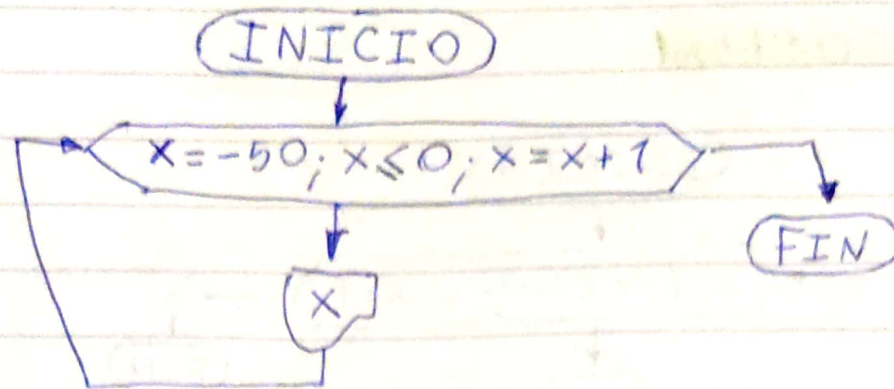 INICIO
x=-50; x≤0; x=x+1
FIN
x